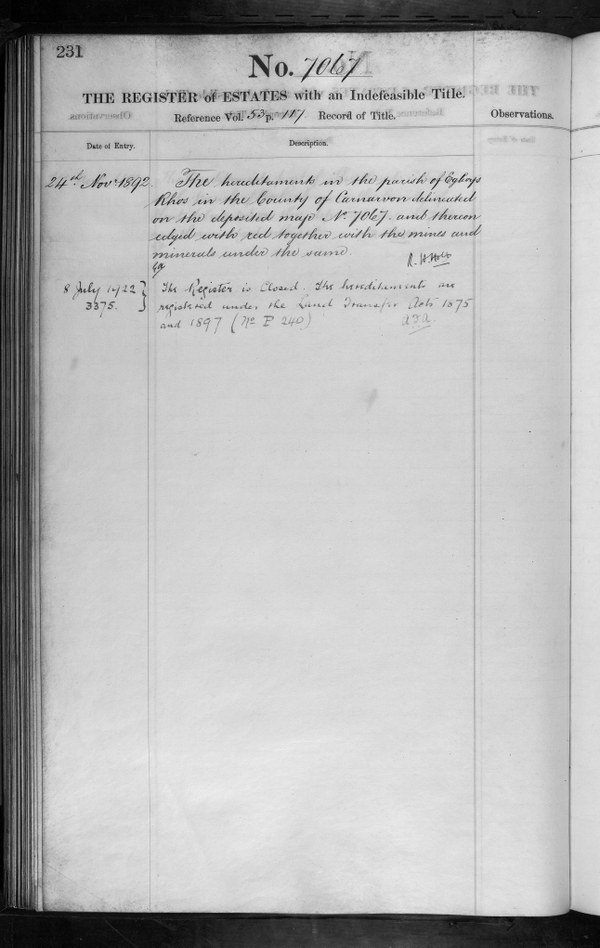 231
No. 7067
THE REGISTER of ESTATES with an Indefeasible Title.
Reference Vol. 53 p. 117 Record of Title.
Observations.
Date of Entry.
Description.
24th Novr 1892.
The hereditaments in the parish of Eglwys
Rhos in the County of Carnarvon delineated
on the deposited map No 7067. and thereon
edged with red together with the mines and
minerals under the same.
R. H. Holt
8 July 1922
3375.
The Register is Closed. The hereditaments are
registered under the Land Transfer Acts 1875
and 1897 (No P 240)